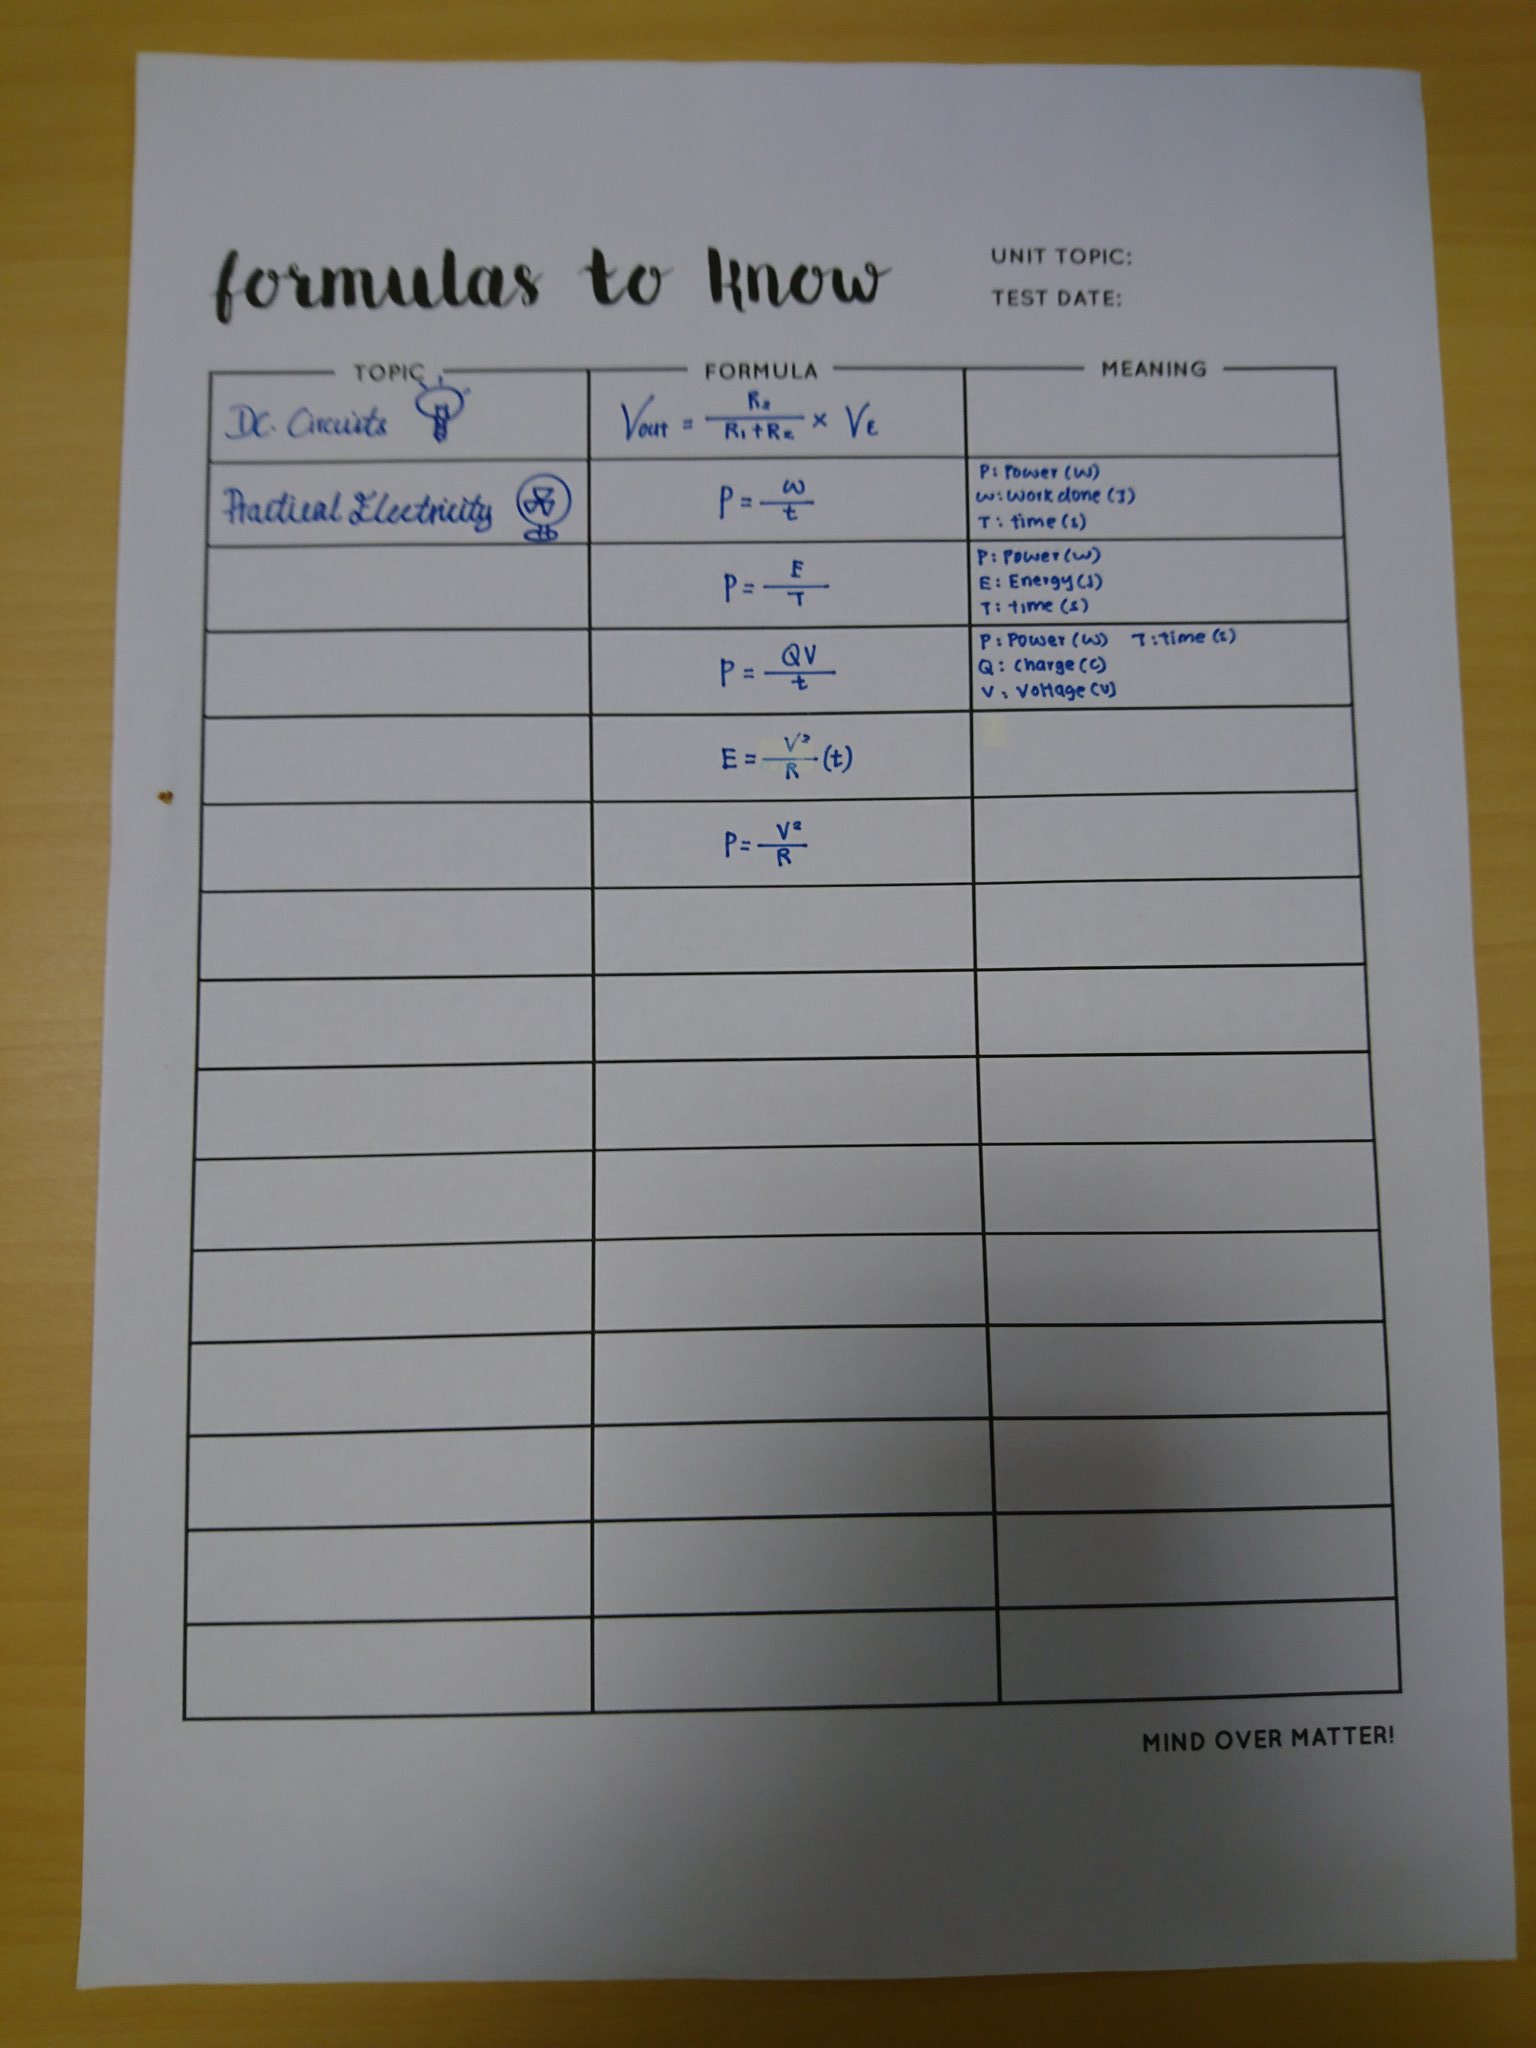 formulas to know
UNIT TOPIC:
TEST DATE:
TOPIC FORMULA MEANING
D.C. Circuits Vout = R₂ / R₁ + R₂ × Vε
Practical Electricity P = W / t
P: Power (W)
W: Work done (J)
T: time (s)
P = E / T
P: Power (W)
E: Energy (J)
T: time (s)
P = QV / t
P: Power (W) T: time (s)
Q: Charge (C)
V: Voltage (V)
E = V² / R (t)
P = V² / R
MIND OVER MATTER!